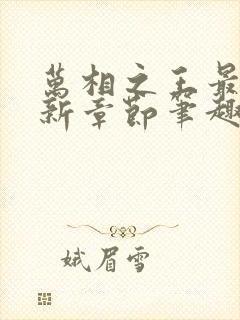 萬相之王最
新章節筆趣
娥眉雪